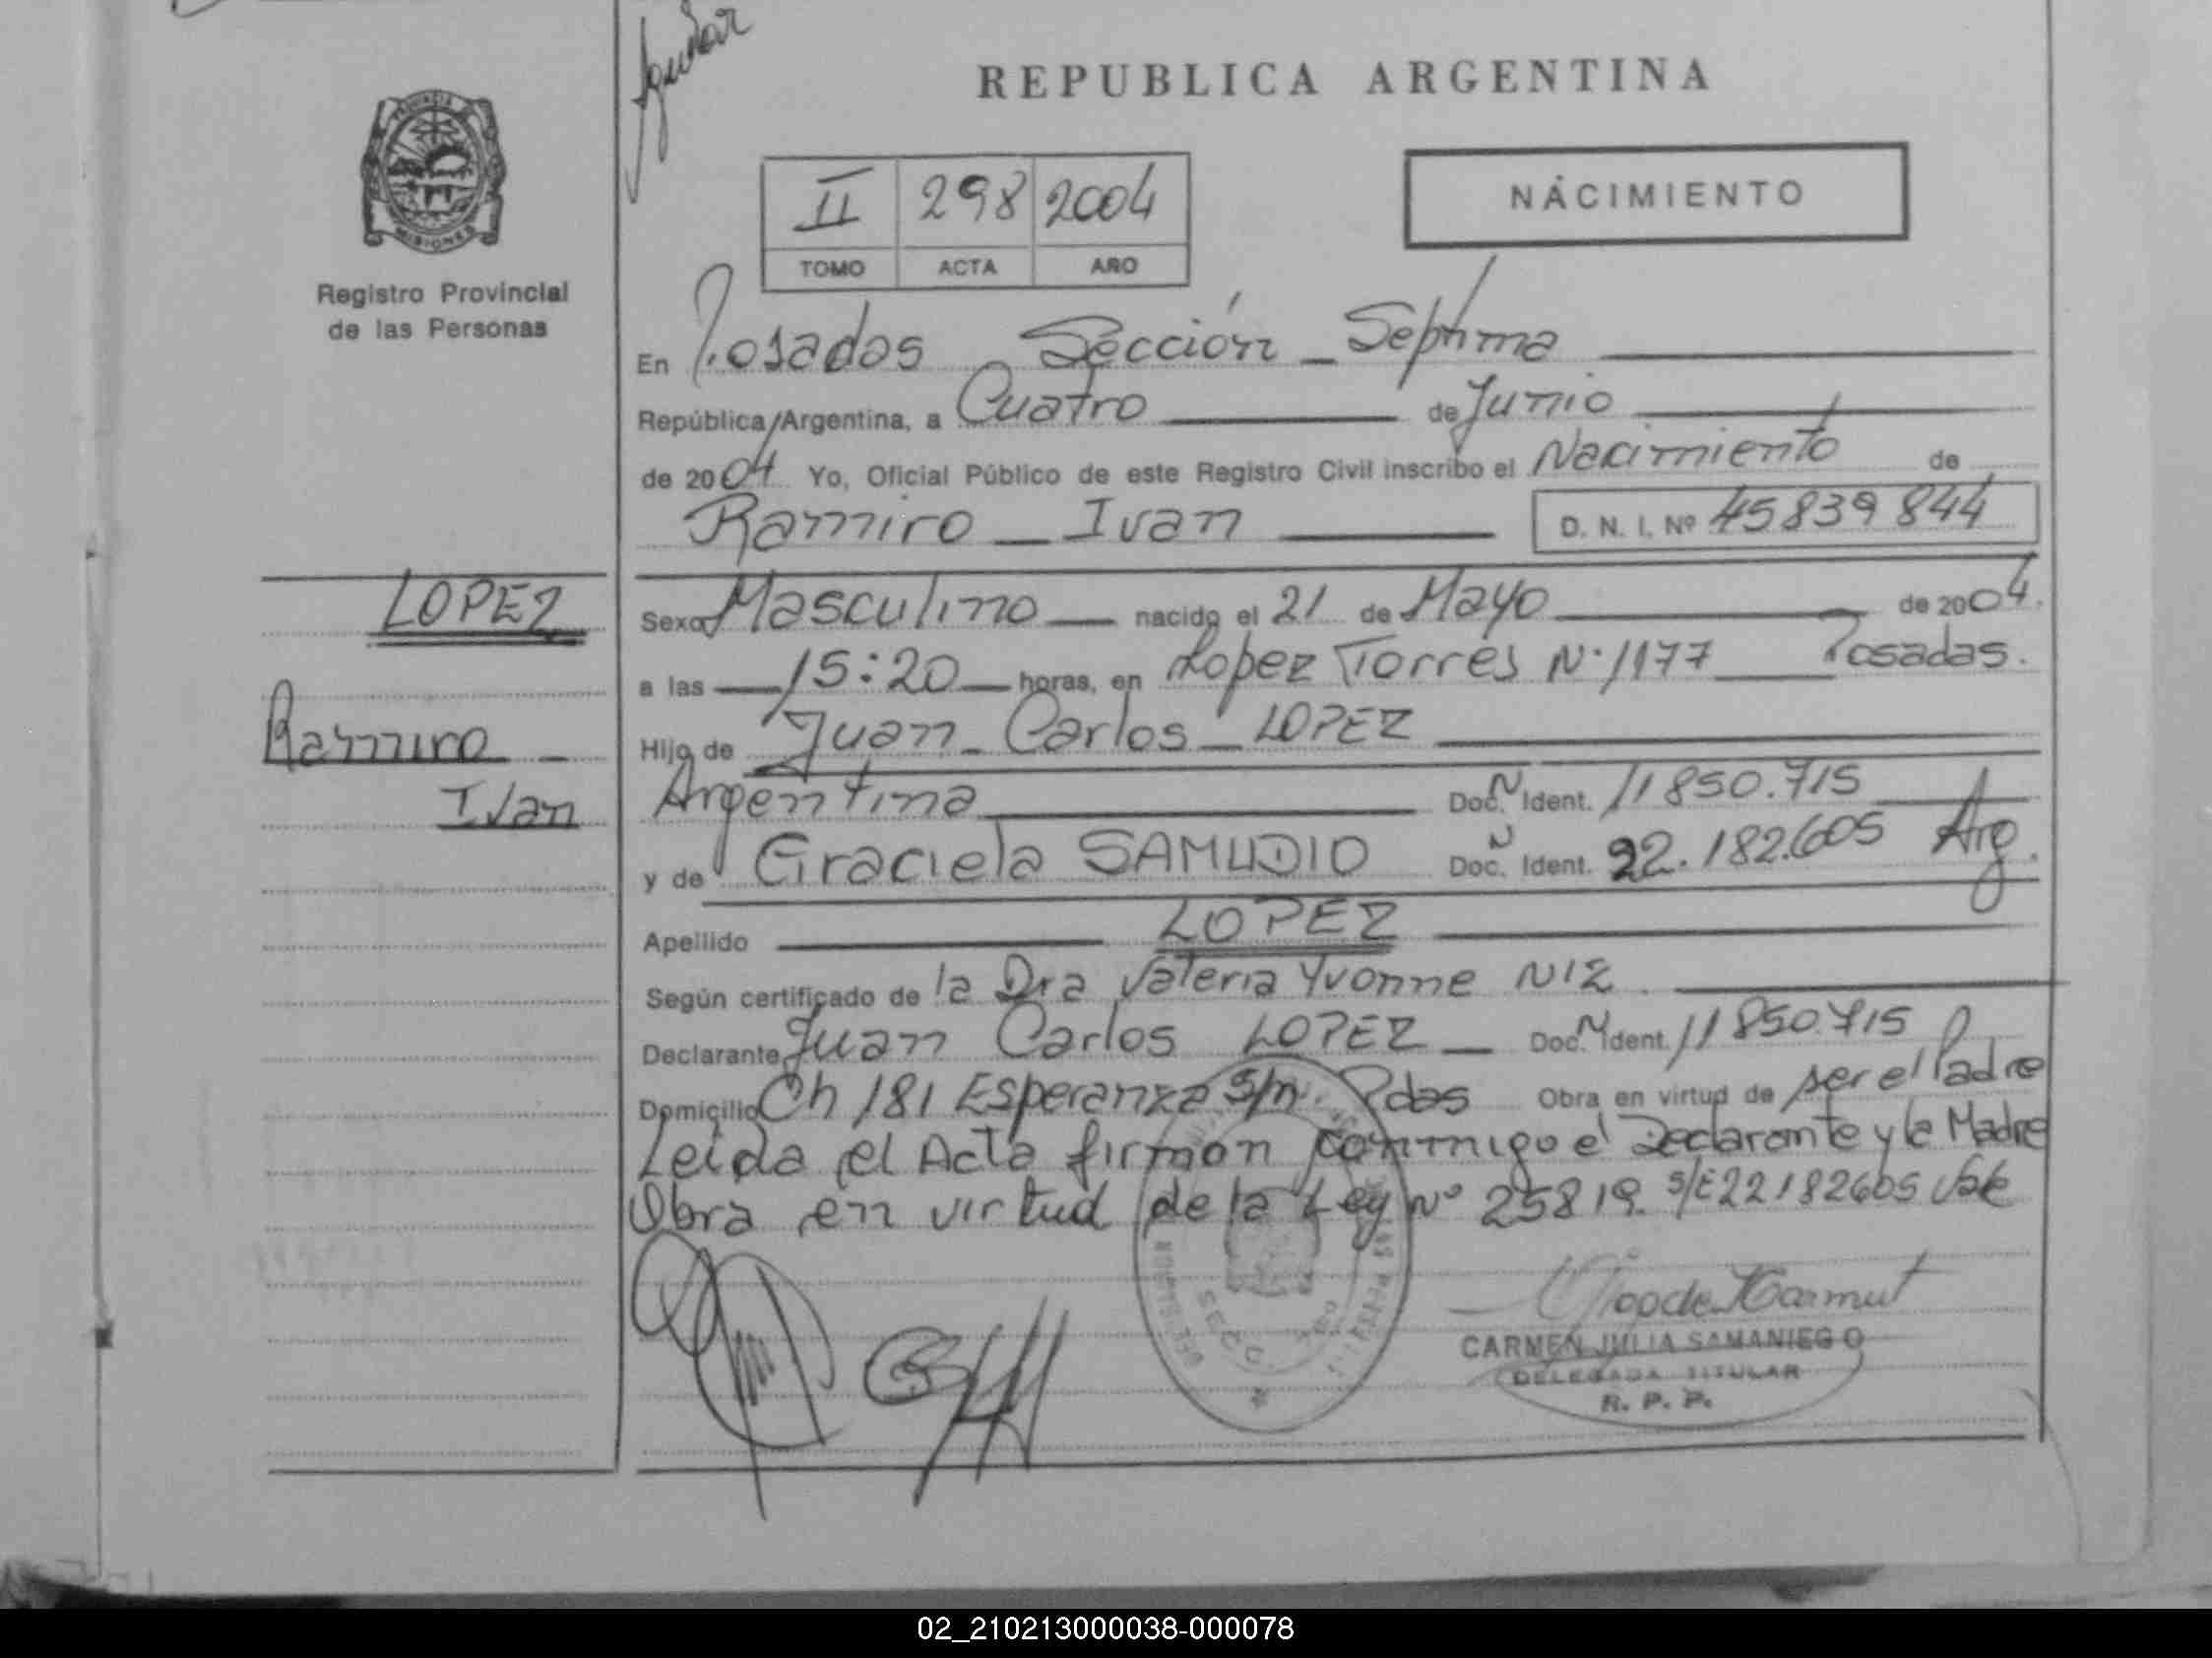 Aguilar
REPUBLICA ARGENTINA
PROVINCIA DE
MISIONES
Registro Provincial
de las Personas
II 298 2004
TOMO ACTA AÑO
NACIMIENTO
En Posadas Sección _ Septima
República Argentina, a Cuatro de Junio
de 2004 Yo, Oficial Público de este Registro Civil inscribo el Nacimiento de
Ramiro _ Ivan D. N. I. Nº 45839844
LOPEZ
Ramiro _
Ivan
Sexo Masculino nacido el 21 de Mayo de 2004.
a las 15:20 horas, en Lopez Torres N° 1177 Posadas.
Hijo de Juan _ Carlos _ LOPEZ
Argentina Doc. N Ident. 11850.715
y de Graciela SAMUDIO Doc. N Ident. 22.182.605 Arg.
Apellido LOPEZ
Según certificado de la Dra Valeria Yvonne NIZ
Declarante Juan Carlos LOPEZ _ Doc. N Ident. 11850.715
Domicilio Ch 181 Esperanza s/n. Pdas Obra en virtud de ser el Padre
Leida el Acta firman conmigo el Declarante y la Madre
Obra en virtud de la Ley Nº 25819. S/E 22182605 Vale
CARMEN JULIA SAMANIEGO
DELEGADA TITULAR
R. P. P.
02_210213000038-000078